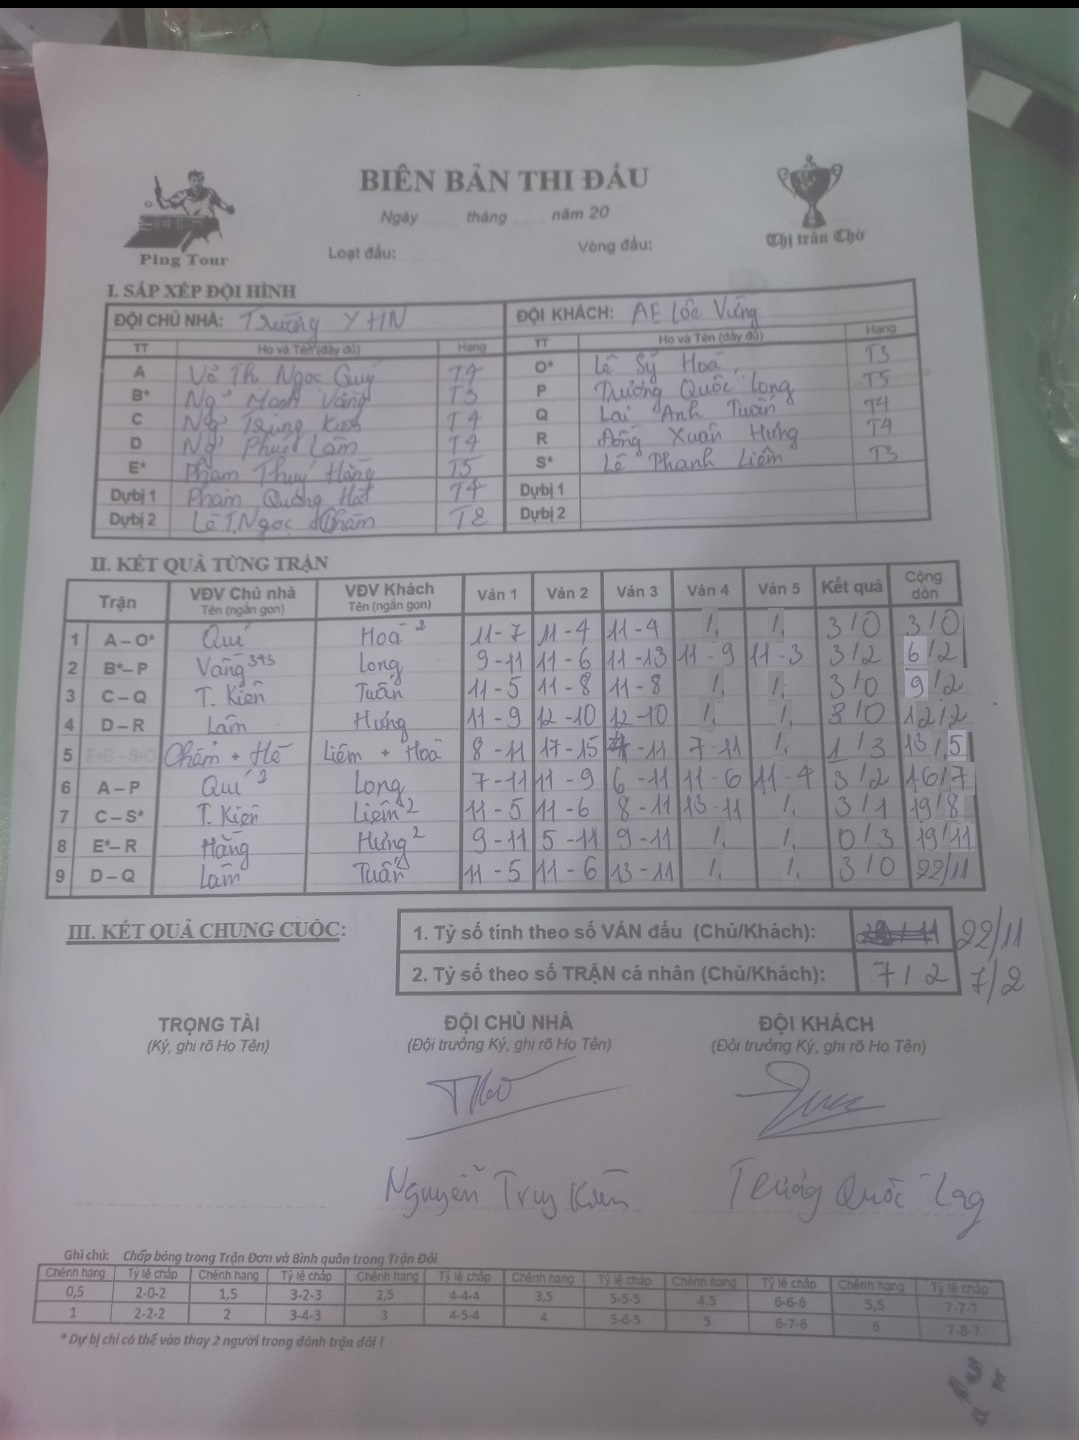 BIÊN BẢN THI ĐẤU
Ngày tháng năm 20
Ping Tour
Loạt đấu: Vòng đấu:
Thị trấn Chờ
I. SẮP XẾP ĐỘI HÌNH
ĐỘI CHỦ NHÀ: Trường YHN ĐỘI KHÁCH: AE Lộc Vừng
TT Họ và Tên (đầy đủ) Hạng TT Họ và Tên (đầy đủ) Hạng
A Võ Th Ngọc Quý O* Lê Sỹ Hoà T3
B* Ngô Mạnh Vâng T3 P Trương Quốc Long T5
C Ngô Trung Kiên T4 Q Lại Anh Tuấn T4
D Ngô Phúc Lâm T4 R Đồng Xuân Hưng T4
E* Phạm Thuý Hằng T5 S* Lê Thanh Liêm T3
Dự bị 1 Phạm Quang T4 Dự bị 1
Dự bị 2 Lê T.Ngọc T2 Dự bị 2
II. KẾT QUẢ TỪNG TRẬN
Trận VĐV Chủ nhà Tên (ngắn gọn) VĐV Khách Tên (ngắn gọn) Ván 1 Ván 2 Ván 3 Ván 4 Ván 5 Kết quả Cộng dồn
1 A – O* Quí Hoà 2 11-7 11-4 11-4 /. /. 3/0 3/0
2 B* – P Vâng 343 Long 9-11 11-6 11-13 11-9 11-3 3/2 6/2
3 C – Q T. Kiên Tuấn 11-5 11-8 11-8 /. /. 3/0 9/2
4 D – R Lâm Hưng 11-9 12-10 12-10 /. /. 3/0 12/2
5 E+B – S+O + Liêm + Hoà 8-11 17-15 -11 7-11 /. 1/3 13/5
6 A – P Quí 2 Long 7-11 11-9 6-11 11-6 11-4 3/2 16/7
7 C – S* T. Kiên Liêm 2 11-5 11-6 8-11 13-11 /. 3/1 19/8
8 E* – R Hằng Hưng 2 9-11 5-11 9-11 /. /. 0/3 19/11
9 D – Q Lâm Tuấn 11-5 11-6 13-11 /. /. 3/0 22/11
III. KẾT QUẢ CHUNG CUỘC:
1. Tỷ số tính theo số VÁN đấu (Chủ/Khách): 22/11
2. Tỷ số theo số TRẬN cá nhân (Chủ/Khách): 7/2 7/2
TRỌNG TÀI ĐỘI CHỦ NHÀ ĐỘI KHÁCH
(Ký, ghi rõ Họ Tên) (Đội trưởng Ký, ghi rõ Họ Tên) (Đội trưởng Ký, ghi rõ Họ Tên)
Nguyễn Kiên Quốc
Ghi chú: Chấp bóng trong Trận Đơn và Bình quân trong Trận Đôi
Chênh hạng Tỷ lệ chấp Chênh hạng Tỷ lệ chấp Chênh hạng Tỷ lệ chấp Chênh hạng Tỷ lệ chấp Chênh hạng Tỷ lệ chấp Chênh hạng Tỷ lệ chấp
0,5 2-0-2 1,5 3-2-3 2,5 4-4-4 3,5 5-5-5 4,5 6-6-6 5,5 7-7-7
1 2-2-2 2 3-4-3 3 4-5-4 4 5-6-5 5 6-7-6 6 7-8-7
* Dự bị chỉ có thể vào thay 2 người trong đánh trận đôi !